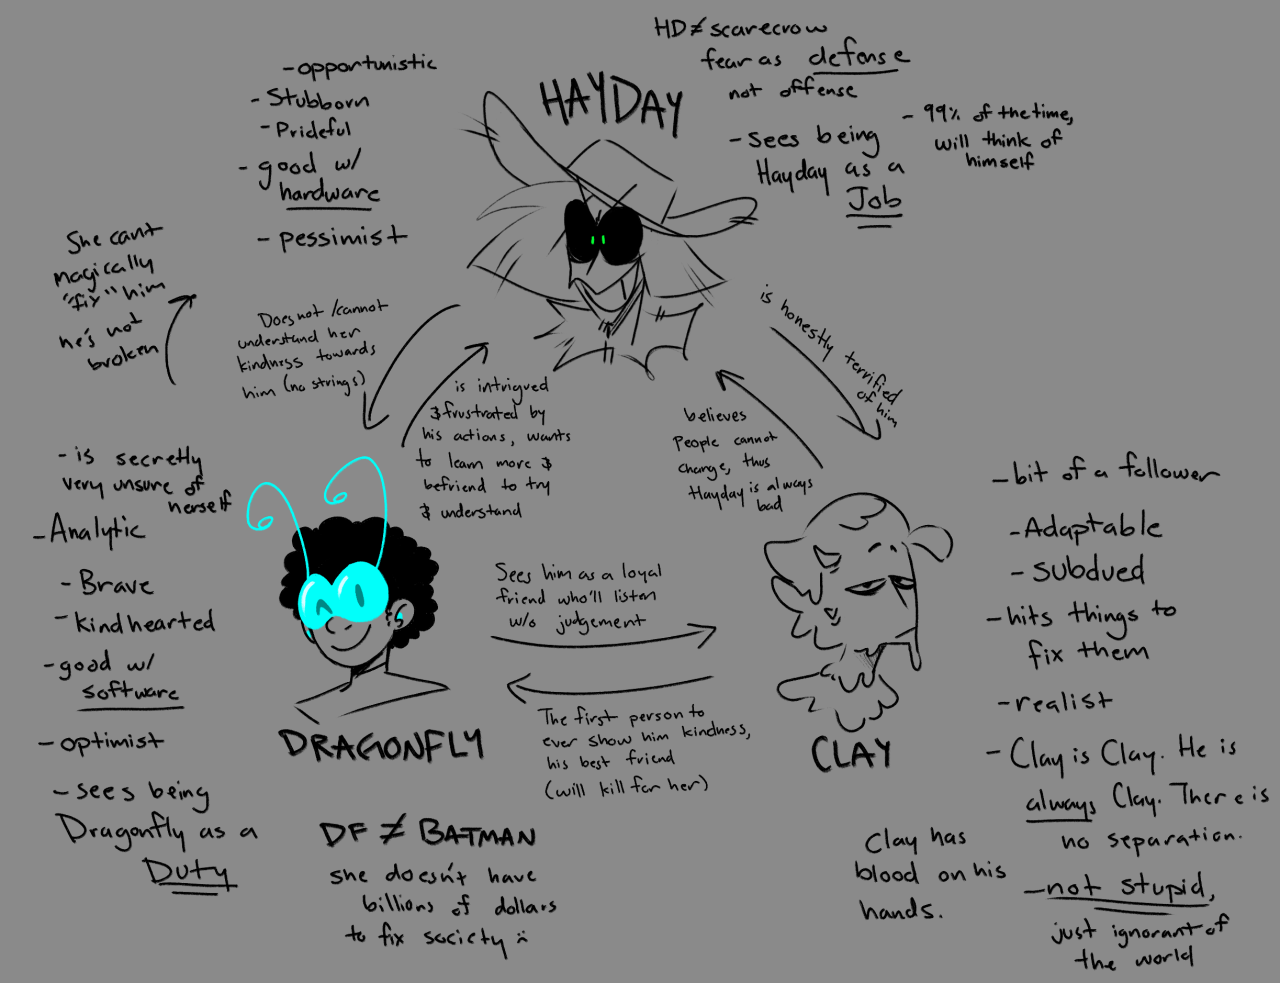 HD ≠ scarecrow
fear as defense
not offense
- opportunistic
- Stubborn
- Prideful
- good w/
hardware
- pessimist
HAYDAY
- sees being
Hayday as a
Job
- 99% of the time,
will think of
himself
She cant
magically
"fix" him
he's not
broken
Does not / cannot
understand her
kindness towards
him (no strings)
is intrigued
& frustrated by
his actions, wants
to learn more &
befriend to try
& understand
is honestly terrified
of him
believes
People cannot
change, thus
Hayday is always
bad
- is secretly
very unsure of
herself
- Analytic
- Brave
- kindhearted
- good w/
software
- optimist
- sees being
Dragonfly as a
Duty
DRAGONFLY
Sees him as a loyal
friend who'll listen
w/o judgement
The first person to
ever show him kindness,
his best friend
(will kill for her)
CLAY
- bit of a follower
- Adaptable
- subdued
- hits things to
fix them
- realist
- Clay is Clay. He is
always Clay. There is
no separation.
- not stupid,
just ignorant of
the world
Clay has
blood on his
hands.
DF ≠ BATMAN
she doesn't have
billions of dollars
to fix society :(